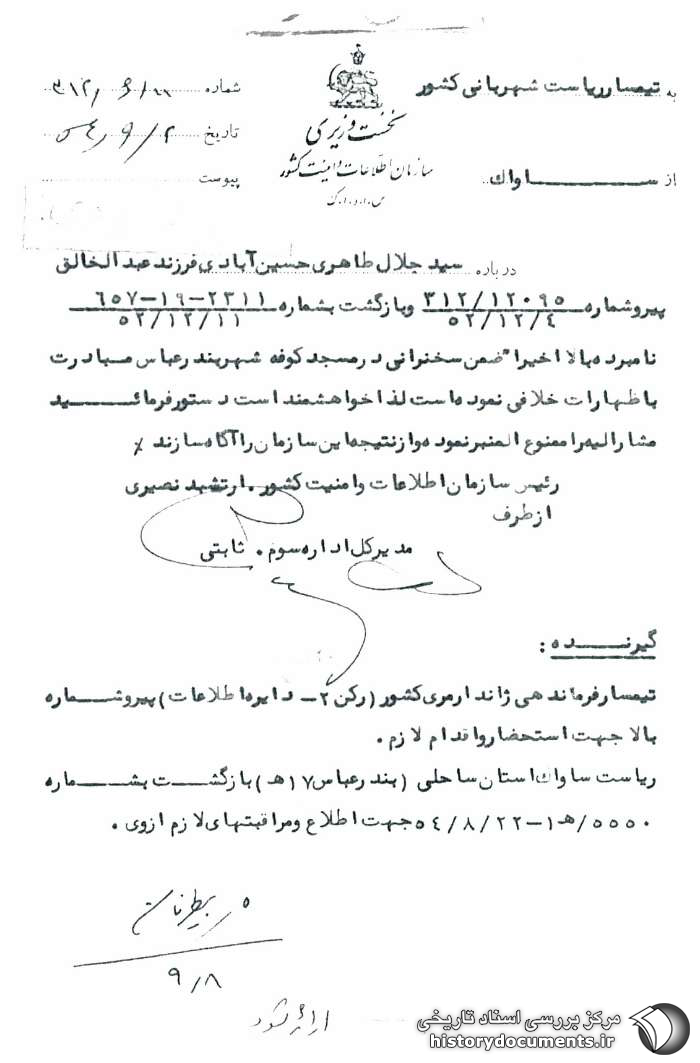 به تیمسار ریاست شهربانی کشور
از ساواک
نخست وزیری
سازمان اطلاعات و امنیت کشور
س.ا.و.ا.ک
شماره ۳۱۲/
تاریخ ۵٤/۹/۲
پیوست
درباره سید جلال طاهری حسین آبادی فرزند عبدالخالق
پیرو شماره ۳۱۲/۱۲۰۹۵ و بازگشت بشماره ۲۳۱۱-۱۹-۶۵۷
۵۲/۱۲/٤ ۵۲/۱۲/۱۱
نامبرده بالا اخیرا" ضمن سخنرانی در مسجد کوفه شهر بندرعباس مبادرت
باظهارات خلافی نموده است لذا خواهشمند است دستور فرمائید
مشارالیه را ممنوع المنبر نموده و از نتیجه این سازمان را آگاه سازند
رئیس سازمان اطلاعات و امنیت کشور. ارتشبد نصیری
از طرف
مدیرکل اداره سوم. ثابتی
گیرنده:
تیمسار فرماندهی ژاندارمری کشور (رکن ۲- دایره اطلاعات) پیرو شماره
بالا جهت استحضار و اقدام لازم.
ریاست ساواک استان ساحلی (بندرعباس ۱۷ه) بازگشت بشماره
۵۵۵۰/ه۱-۵٤/۸/۲۲ جهت اطلاع و مراقبتهای لازم از وی.
۹/۸
ارائه شود
مرکز بررسی اسناد تاریخی
historydocuments.ir